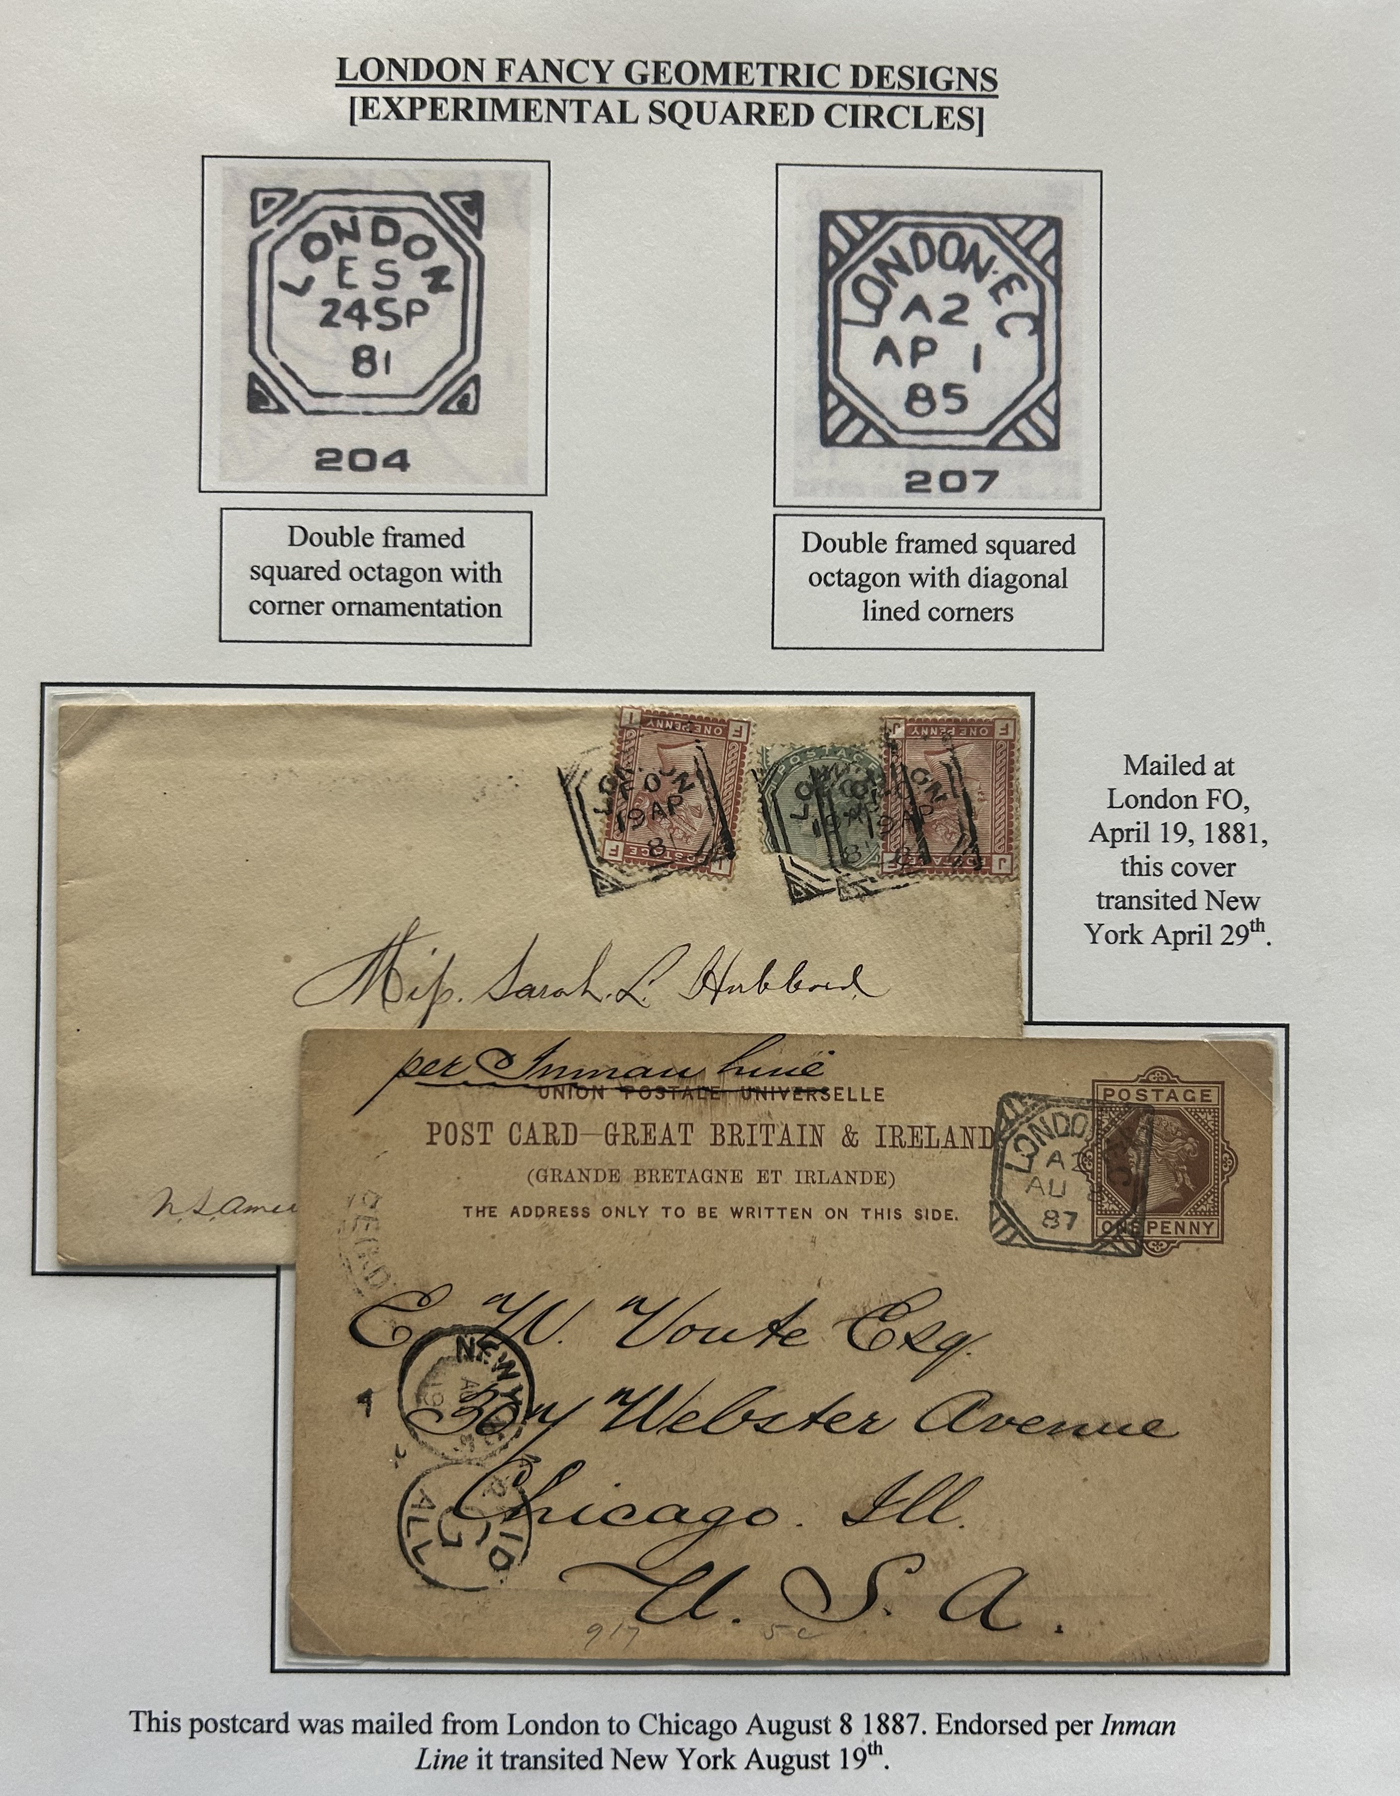 LONDON FANCY GEOMETRIC DESIGNS
[EXPERIMENTAL SQUARED CIRCLES]
LONDON
ES
24SP
81
204
LONDON·EC
A2
AP 1
85
207
Double framed
squared octagon with
corner ornamentation
Double framed squared
octagon with diagonal
lined corners
ONE PENNY
POSTAGE
F
I
F
I
FO
19AP
8
POSTAGE
19AP
81
ONE PENNY
POSTAGE
F
J
F
J
LONDON
19AP
8
Mailed at
London FO,
April 19, 1881,
this cover
transited New
York April 29th.
Miss. Sarah. L. Hubbard
per Inman Line
UNION POSTALE UNIVERSELLE
POST CARD—GREAT BRITAIN & IRELAND
(GRANDE BRETAGNE ET IRLANDE)
THE ADDRESS ONLY TO BE WRITTEN ON THIS SIDE.
POSTAGE
ONE PENNY
LONDO
A2
AU 8
87
E. W. Voute Esq.
Webster Avenue
Chicago. Ill.
U. S. A.
NEW Y
PAID
ALL
917
5c
This postcard was mailed from London to Chicago August 8 1887. Endorsed per Inman
Line it transited New York August 19th.